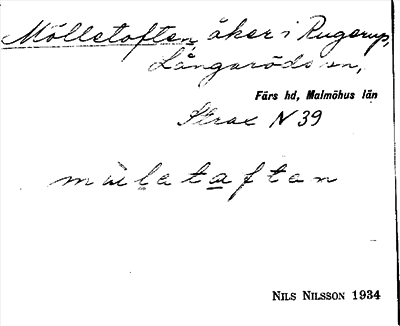 Möllstoften, åker i Rugerup,
Långaröds sn,
Färs hd, Malmöhus län
Strax N 39
mùlataftan
NILS NILSSON 1934